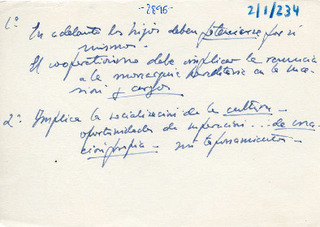 -2896-
2/1/234
1º En adelante los hijos deben potenciarse por si
mismos.
El cooperativismo debe implicar la renuncia
a la monarquia hereditaria en la suce-
sión y cargos
2º: Implica la socialización de la cultura -
oportunidades de superación... de crea-
ción propia -